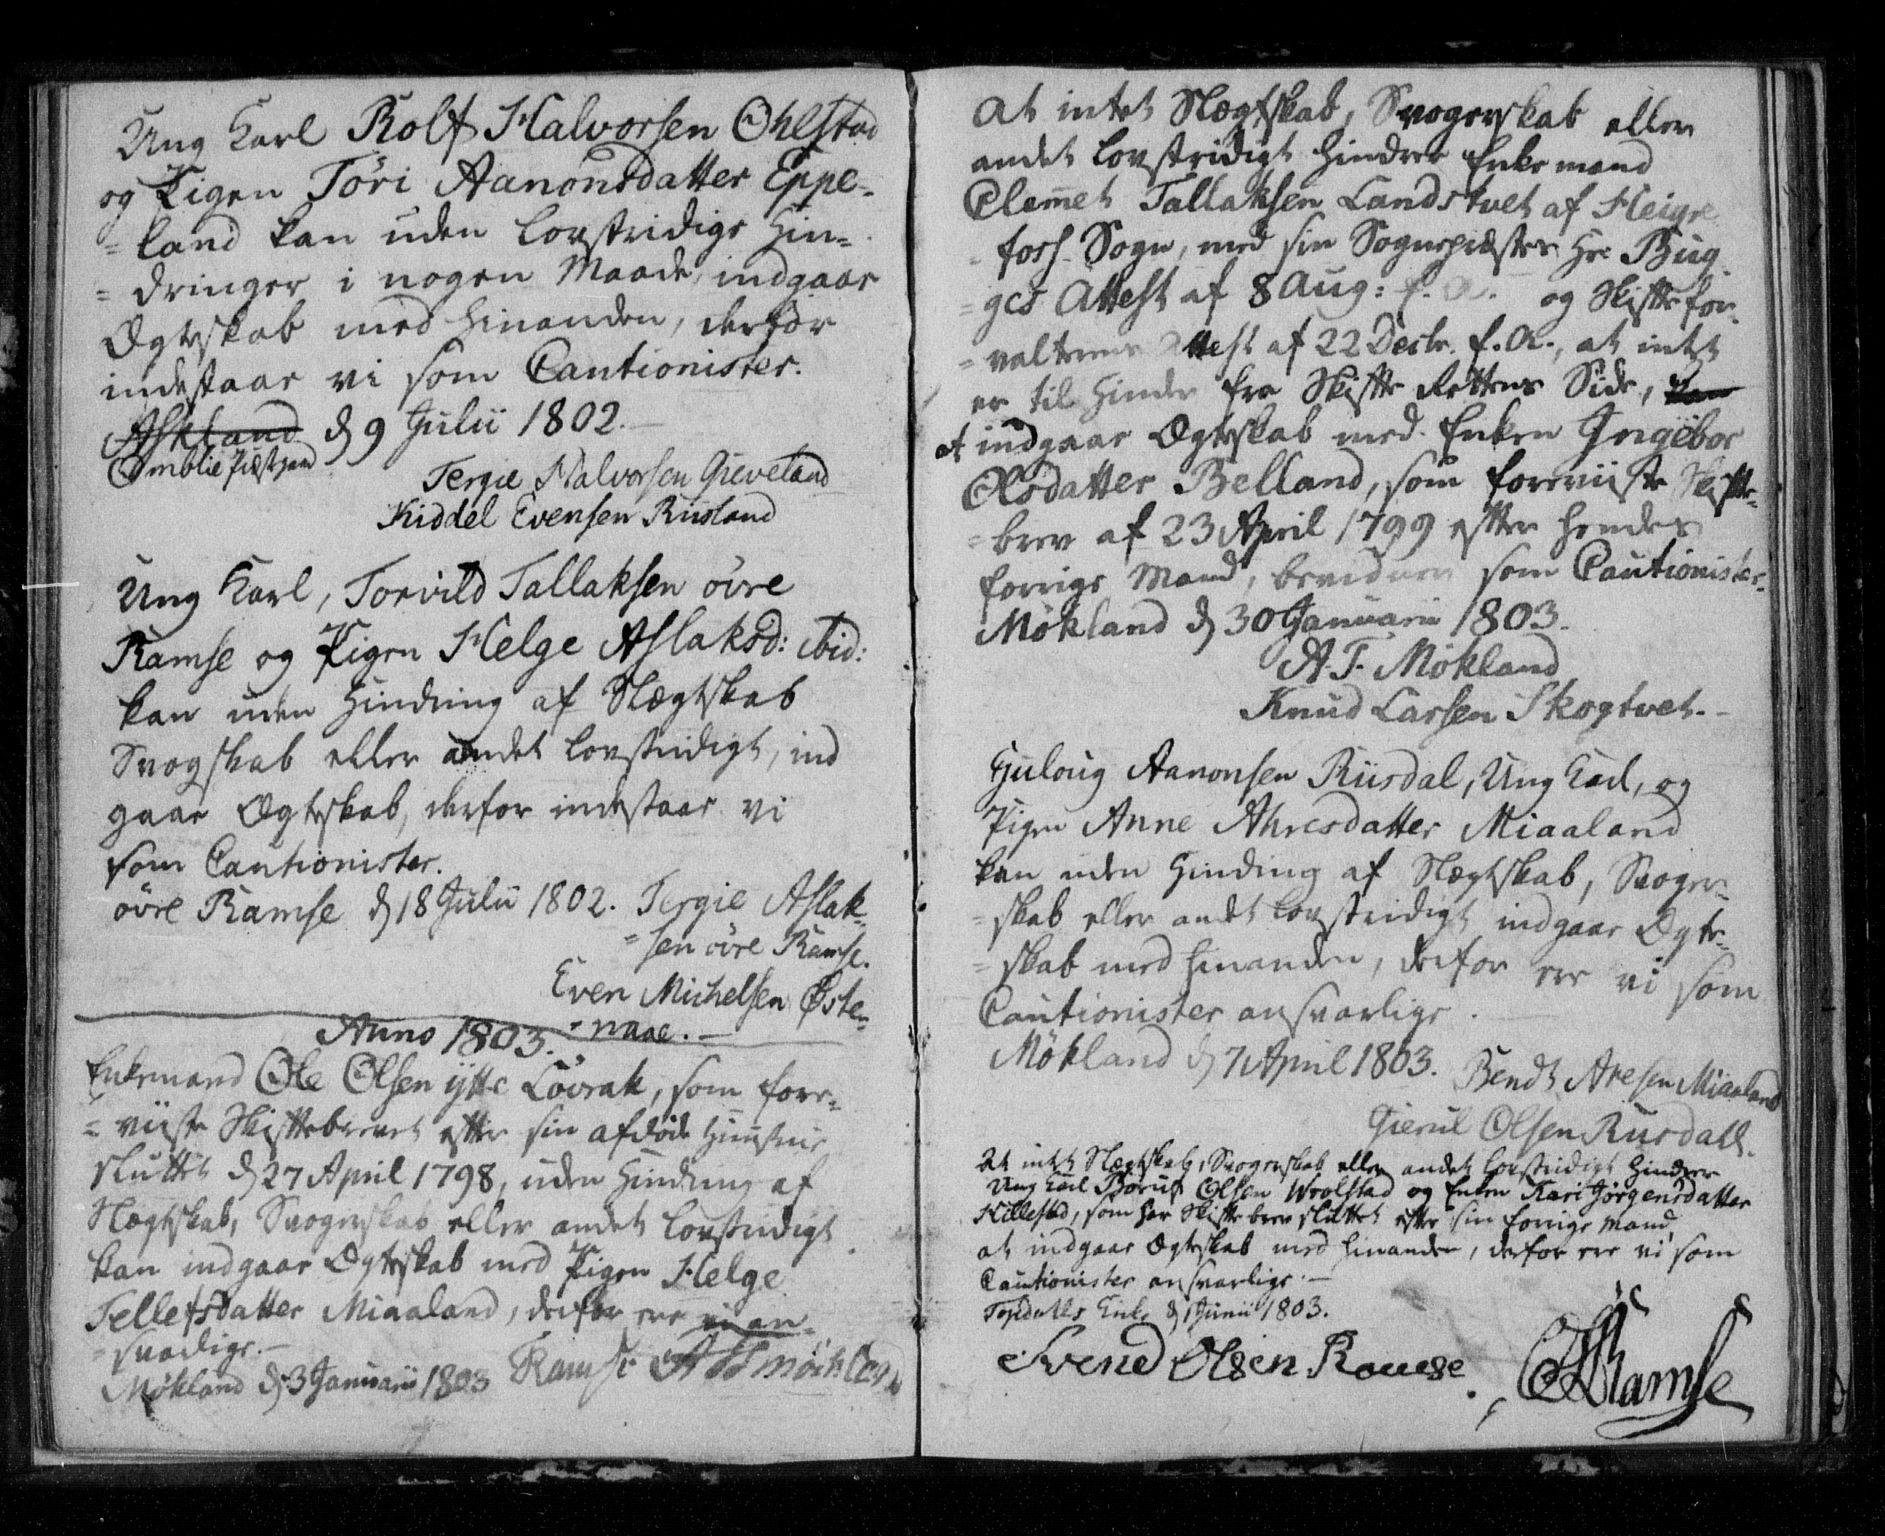 Ung Karl Rolf Halvorsen Ohlstad
og Pigen Töri Aanonsdatter Eppe-
= land kan uden lovstridige Hin=
= dringer i nogen Maade, indgaae
Ægteskab med hinanden, derfor
indestaar vi som Cautionister.
Askland d 9 Julii 1802.
Omblie Præstgaard
Tergie Halvorsen Greveland
Kiddel Evensen Rusland
Ung Karl, Torvild Tallaksen övre
Ramse og Pigen Helge Aslaksd: ibid:
kan uden Hindring af Slægtskab
Svogskab eller andet lovstridigt, ind
gaae Ægteskab, derfor indestaar vi
som Cautionister.
övre Ramse d 18 Julii 1802. Tergie Aslak-
= sen övre Ramse.
Even Michelsen Öste-
= naae.
Anno 1803.
Enkemand Ole Olsen ÿtte Lövrak, som fore-
= viiste Skiftebrevet efter sin afdöde Hustrue
sluttet d 27 April 1798, uden Hindring af
Slægtskab, Svogerskab eller andet lovstridigt
kan indgaae Ægteskab med Pigen Helge
Tellefsdatter Miaaland, derfor ere vi an-
= svarlige.
Mökland d 3 Januarii 1803 Ramse
At intet Slægtskab, Svogerskab eller
andet lovstridigt hindrer Enkemand
Clemet Tallaksen Landstvet af Heigre
fos Sogn, med sin Sognepræstes Hr: Bug
= ges Attest af 8 Aug: f. A. og Skiftefor-
= valterens Attest af 22 Decbr. f. A., at intet
er til Hinder fra Skifte Rettens Side,
at indgaae Ægteskab med Enken Ingebor
Olsdatter Belland, som foreviiste Skifte-
= brev af 23 April 1799 efter hendes
forrige Mand, bevidner som Cautionister
Mökland d 30 Januarii 1803.
A. T. Mökland
Knud Larsen Skogtvet.
Guloug Aanonsen Rüsdal, Ung Karl, og
Pigen Anne Ahresdatter Miaaland
kan uden Hindring af Slægtskab, Svoger-
= skab eller andet lovstridigt indgaae Ægte-
= skab med hinanden, derfor ere vi som
Cautionister ansvarlige.
Mökland d 7 April 1803. Bendt Aresen Miaaland
Gierul Olsen Rusdall.
At intet Slægtskab, Svogerskab eller andet lovstridigt hindrer
Ung Karl Olsen og Enken Kari Jörgensdatter
Hillestad, som har Skiftebrev sluttet efter sin forrige Mand,
at indgaae Ægteskab med hinanden, derfor ere vi som
Cautionister ansvarlige.
d 1 Junii 1803.
Svend Olsen Ramse
Ramse